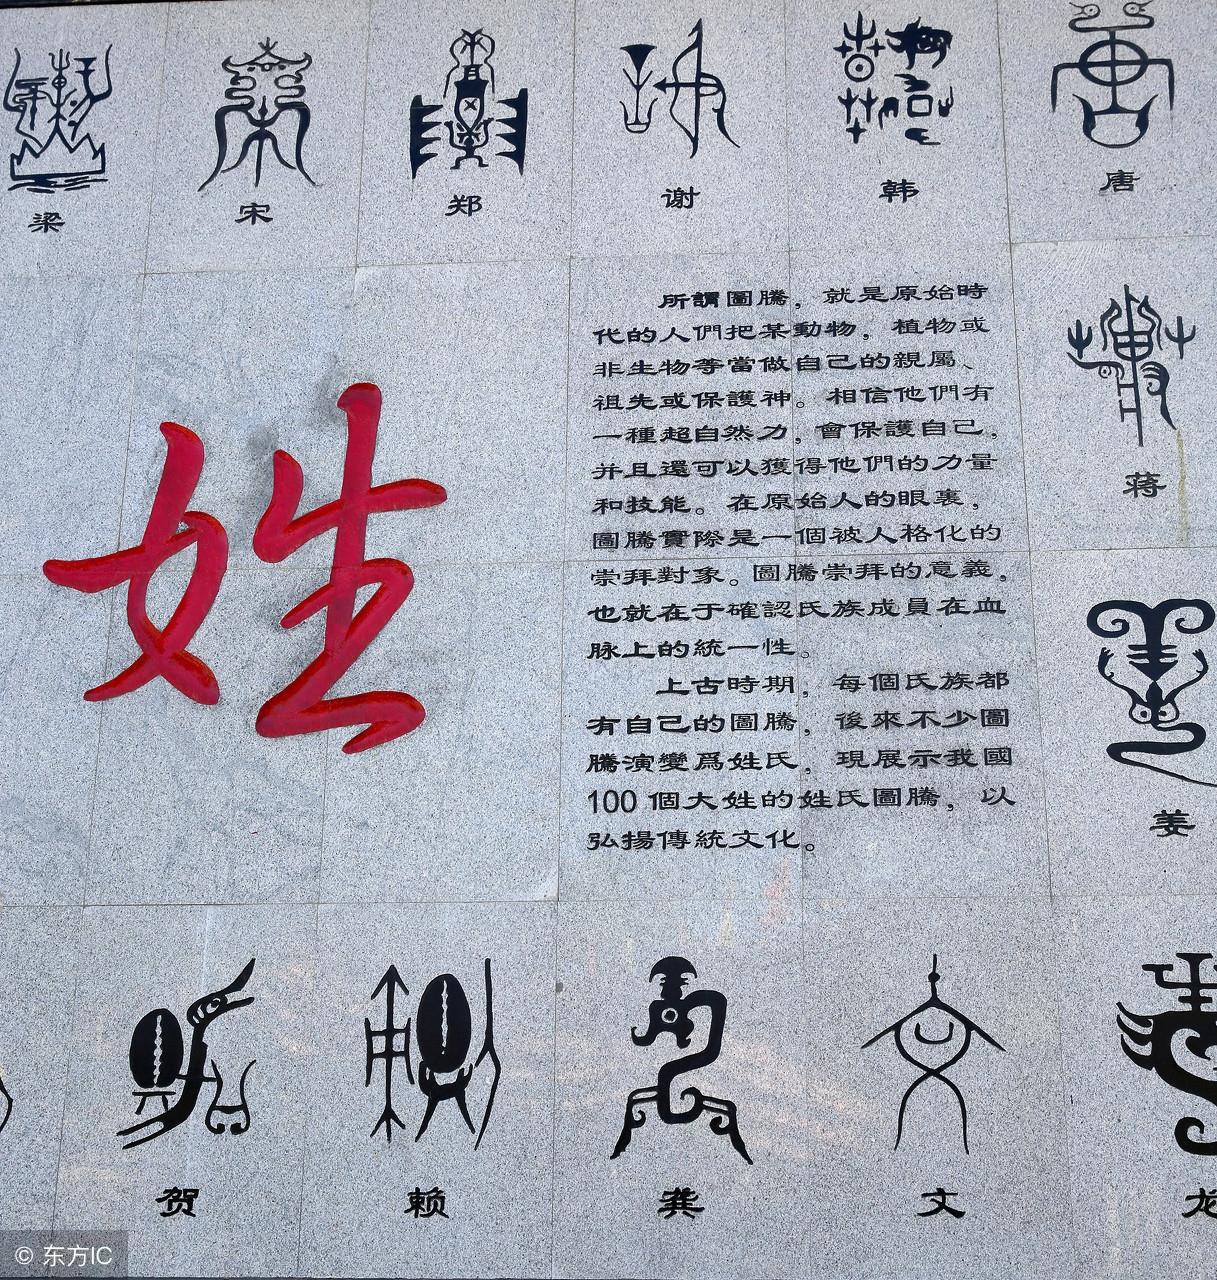 梁 宋 郑 谢 韩 唐
所謂圖騰，就是原始時
代的人們把某動物，植物或
非生物等當做自己的親屬、
祖先或保護神。相信他們有
一種超自然力，會保護自己，
并且還可以獲得他們的力量
和技能。在原始人的眼裏，
圖騰實際是一個被人格化的
崇拜對象。圖騰崇拜的意義，
也就在于確認氏族成員在血
脉上的統一性。
上古時期，每個氏族都
有自己的圖騰，後來不少圖
騰演變爲姓氏，現展示我國
100 個大姓的姓氏圖騰，以
弘揚傳統文化。
姓
蒋
姜
贺 赖 龚 文 龙
© 东方IC